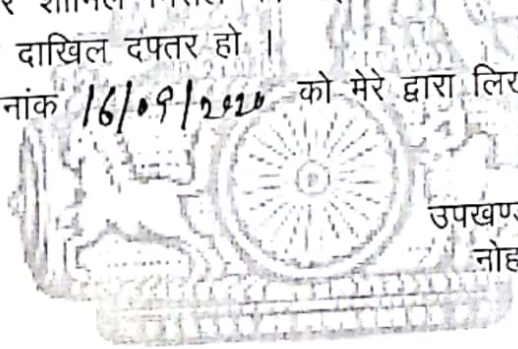 र शामिल
दाखिल दफ्तर हो ।
नांक 16/09/2020 को मेरे द्वारा लिर
उपखण्ड
नोह